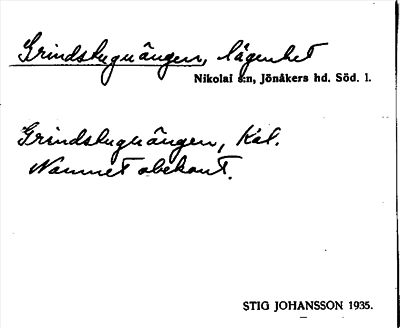 Grindstuguängen, lägenhet
Nikolai s:n, Jönåkers hd. Söd. l.
Grindstuguängen, Kat.
Namnet obekant.
STIG JOHANSSON 1935.